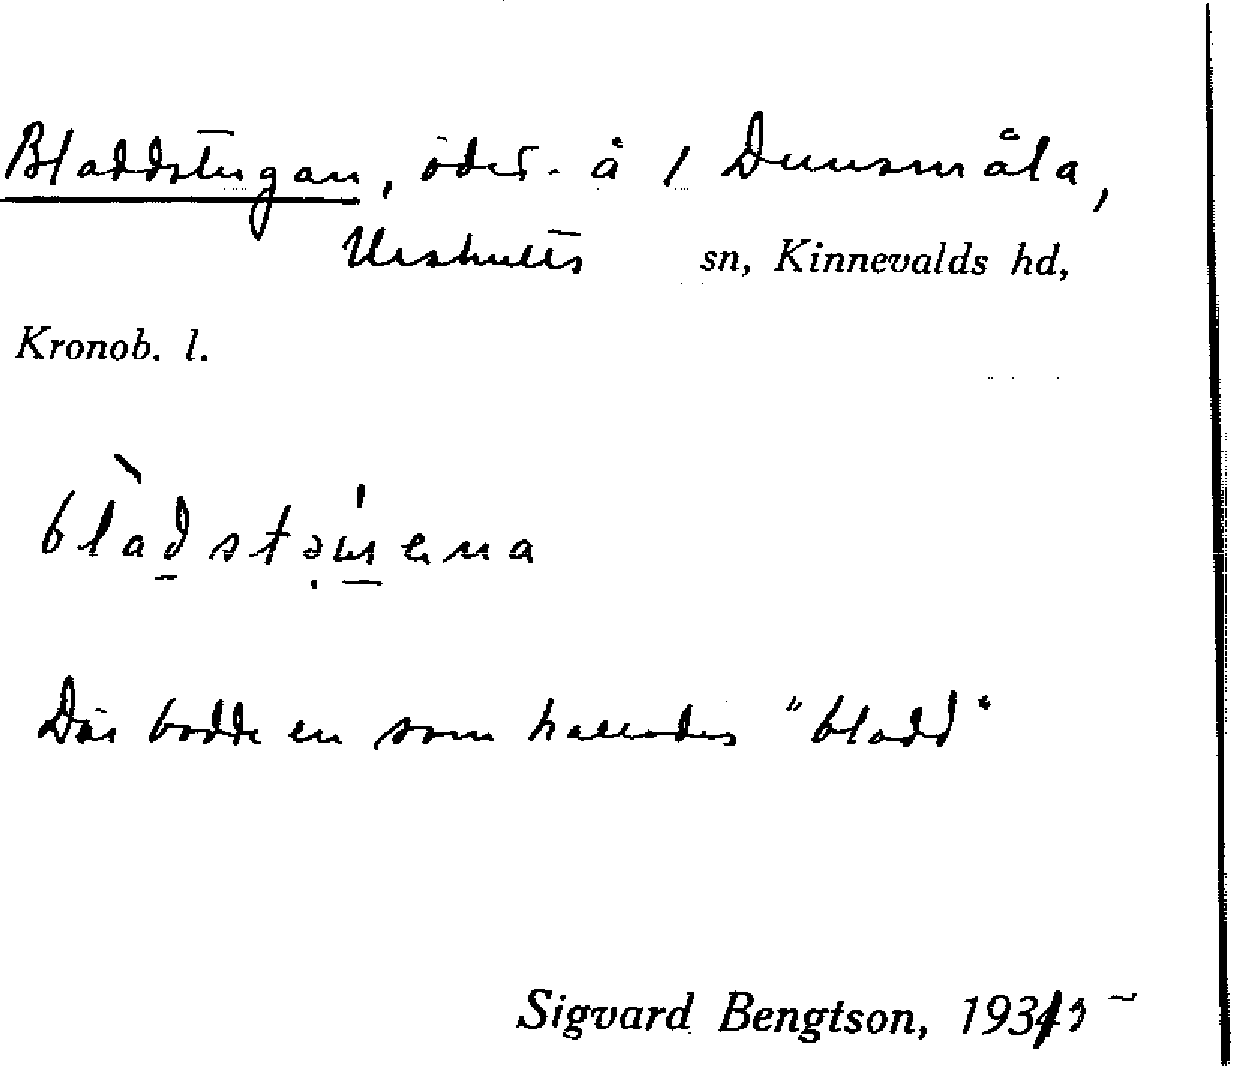 Bladdstugan, ödet. å 1 Dunsmåla,
Urshults sn, Kinnevalds hd,
Kronob. l.
Där bodde en som kallades "bladd"
Sigvard Bengtson, 193